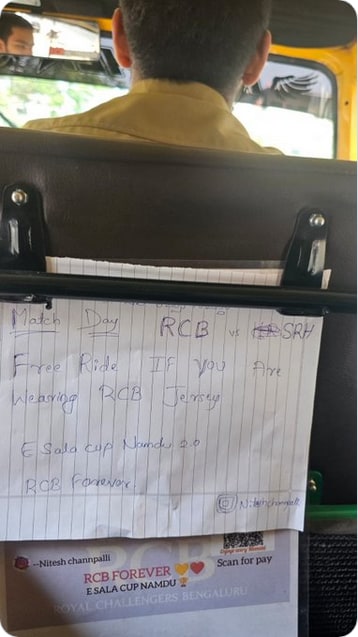 Match Day RCB vs SRH
Free Ride IF you Are
Wearing RCB Jersey
E Sala Cup Namdu 2.0
RCB Forever.
--Nitesh channpalli
RCB FOREVER 💛❤️
E SALA CUP NAMDU 🏆
Scan for pay
ROYAL CHALLENGERS BENGALURU